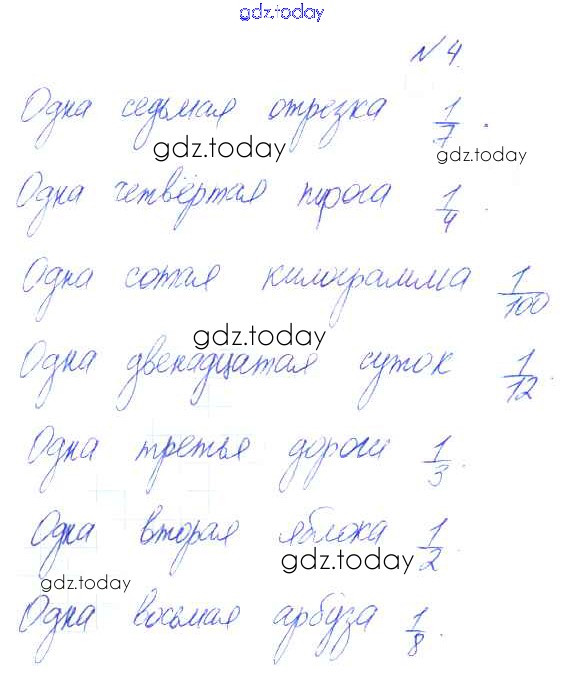 gdz.today
№ 4.
Одна седьмая отрезка 1/7.
gdz.today
gdz.today
Одна четвёртая пирога 1/4.
Одна сотая килограмма 1/100
gdz.today
Одна двенадцатая суток 1/12.
Одна третья дороги 1/3.
Одна вторая яблока 1/2.
gdz.today
gdz.today
Одна восьмая арбуза 1/8.